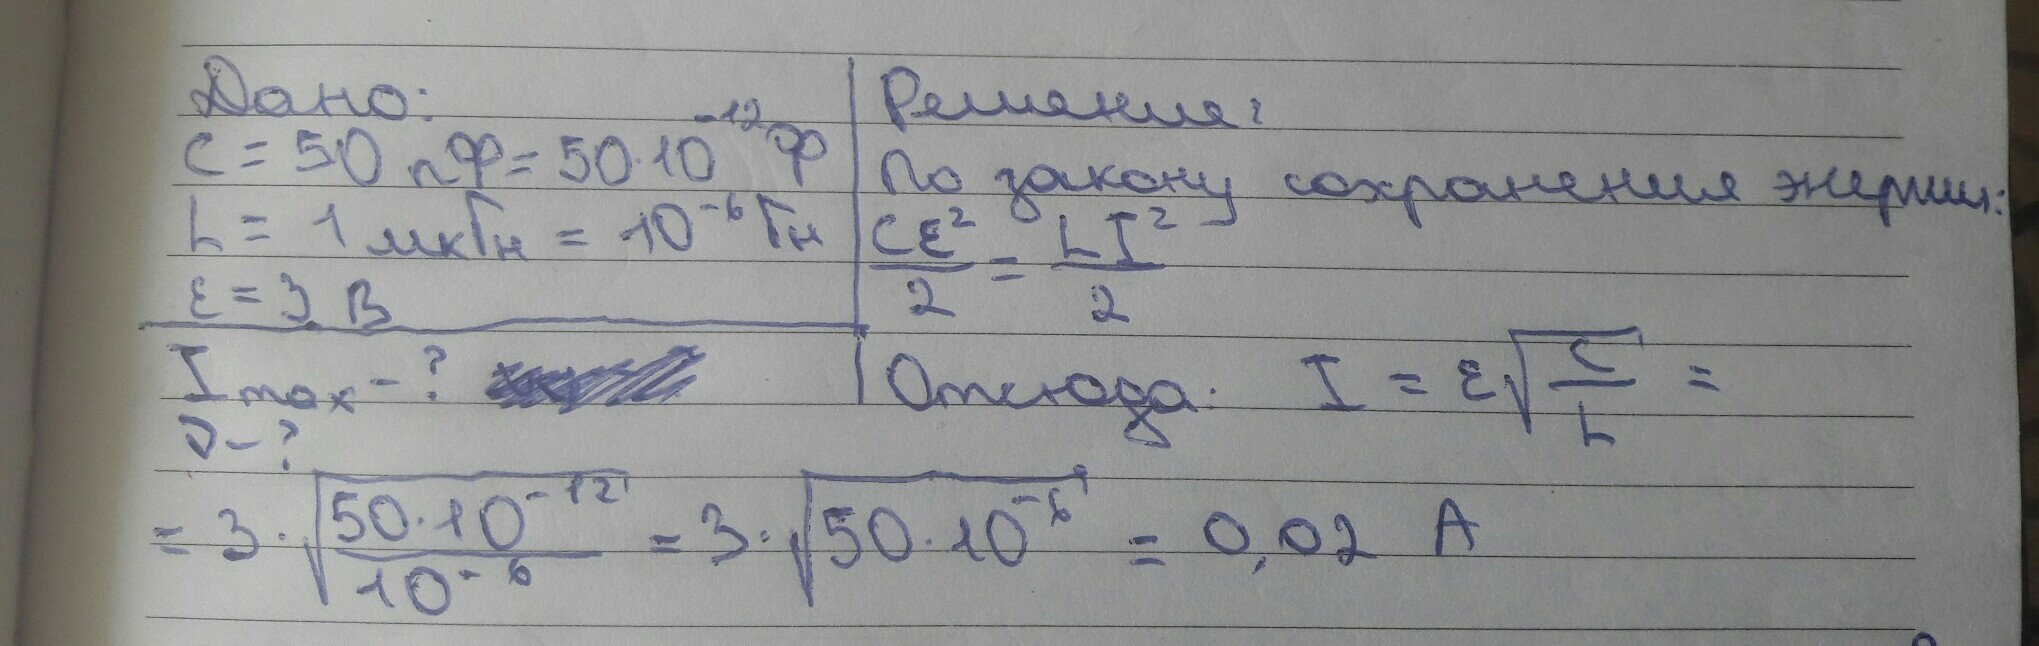 Дано:
C = 50 пФ = 50·10⁻¹² Ф
L = 1 мкГн = 10⁻⁶ Гн
ε = 3 В
Imax - ?
ν - ?
Решение:
По закону сохранения энергии:
Cε²/2 = LI²/2
Отсюда: I = ε√(C/L) =
= 3·√(50·10⁻¹²/10⁻⁶) = 3·√(50·10⁻⁶) = 0,02 А